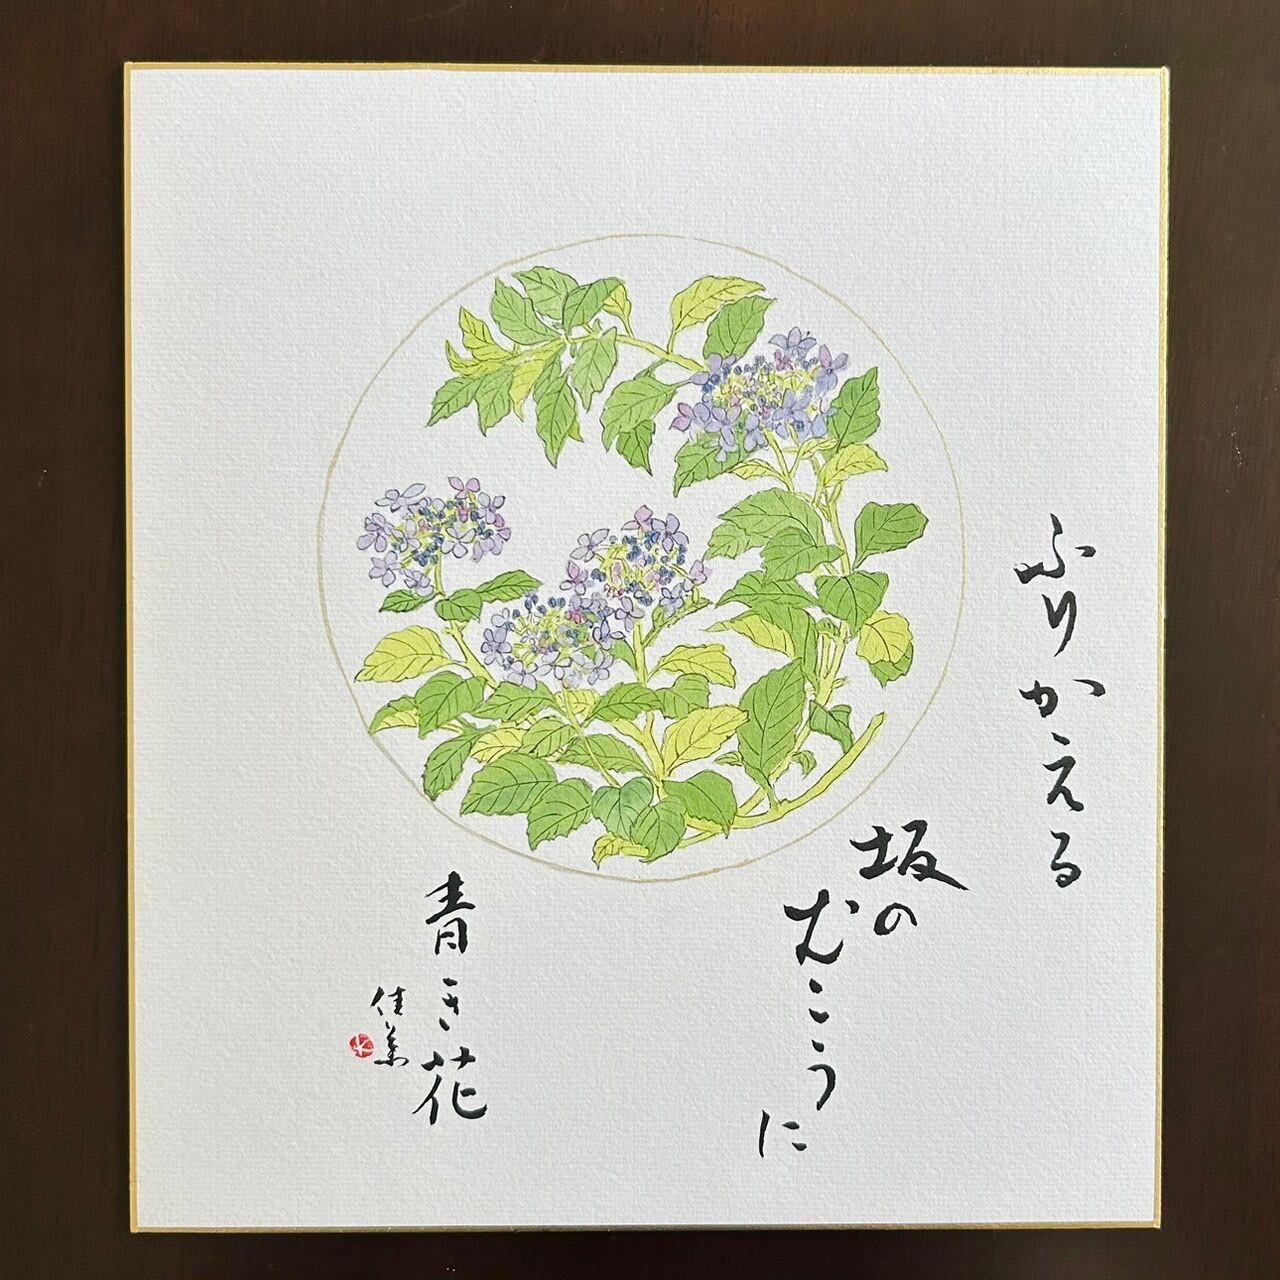 ふりかえる
坂の
むこうに
青き花
佳葉